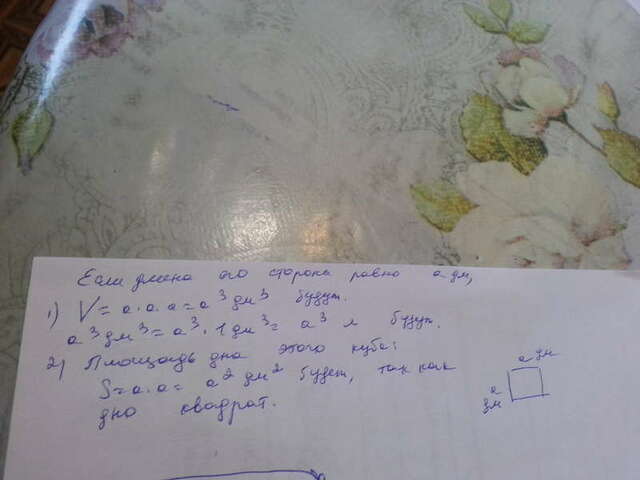 Если длина его сторона равно а дм,
1) V = a · a · a = a³ дм³ будут.
a³ дм³ = a³ · 1 дм³ = a³ л будут.
2) Площадь дна этого куба:
S = a · a = a² дм² будет, так как
дно квадрат.
а дм
а
дм